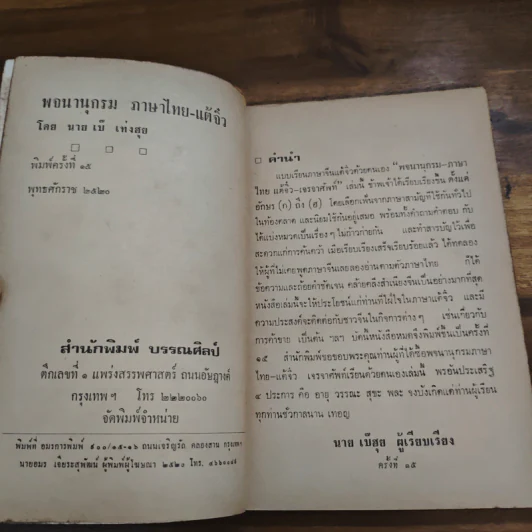 พจนานุกรม ภาษาไทย-แต้จิ๋ว
โดย นาย เบ๊ เท่งสุย
พิมพ์ครั้งที่ ๑๕
พุทธศักราช ๒๕๒๐
สำนักพิมพ์ บรรณศิลป์
ตึกเลขที่ ๑ แพร่งสรรพศาสตร์ ถนนอัษฎางค์
กรุงเทพ ฯ โทร ๒๒๒๐๐๖๐
จัดพิมพ์จำหน่าย
พิมพ์ที่ อมรการพิมพ์ ๙๑๐/๑๕-๑๖ ถนนเจริญรัถ คลองสาน กรุงเทพฯ
นายอมร เจียระสุพัฒน์ ผู้พิมพ์ผู้โฆษณา ๒๕๒๐ โทร.
คำนำ
แบบเรียนภาษาจีนแต้จิ๋วด้วยตนเอง "พจนานุกรม-ภาษา
ไทย แต้จิ๋ว-เจรจาศัพท์" เล่มนี้ ข้าพเจ้าได้เรียบเรียงขึ้น ตั้งแต่
อักษร (ก) ถึง (ฮ) โดยเลือกเฟ้นจากภาษาสามัญที่ใช้กันทั่วไป
ในท้องตลาด และนิยมใช้กันอยู่เสมอ พร้อมทั้งคำถามคำตอบ กับ
ได้แบ่งหมวดเป็นเรื่อง ๆ ไม่ก้าวก่ายกัน และทำสารบัญไว้เพื่อ
สะดวกแก่การค้นคว้า เมื่อเรียบเรียงเสร็จเรียบร้อยแล้ว ได้ทดลอง
ให้ผู้ที่ไม่เคยพูดภาษาจีนเลยลองอ่านตามตัวภาษาไทย ก็ได้
ข้อความและถ้อยคำชัดเจน คล้ายคลึงสำเนียงจีนเป็นอย่างมากที่สุด
หนังสือเล่มนี้จะให้ประโยชน์แก่ท่านที่ใฝ่ใจในภาษาแต้จิ๋ว และมี
ความประสงค์จะติดต่อกับชาวจีนในกิจการต่าง ๆ เช่นเกี่ยวกับ
การค้าขาย เป็นต้น ฯลฯ บัดนี้หนังสือหมดจึงพิมพ์ขึ้นเป็นครั้งที่
๑๕ สำนักพิมพ์ขอขอบพระคุณท่านผู้ที่ได้ซื้อพจนานุกรมภาษา
ไทย-แต้จิ๋ว เจรจาศัพท์เรียนด้วยตนเองเล่มนี้ พรอันประเสริฐ
๔ ประการ คือ อายุ วรรณะ สุขะ พละ จงบังเกิดแด่ท่านผู้เรียน
ทุกท่านชั่วกาลนาน เทอญ
นาย เบ๊สุย ผู้เรียบเรียง
ครั้งที่ ๑๕